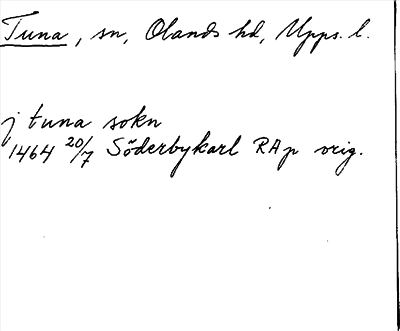 Tuna, sn, Olands hd, Upps. l.
j tuna sokn
1464 20/7 Söderbykarl RAp orig.